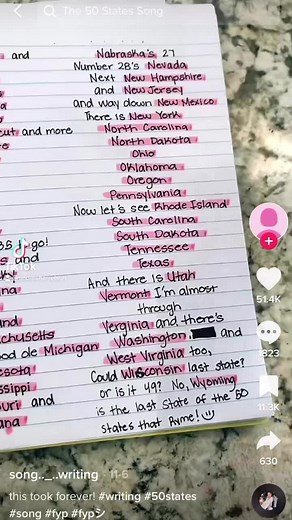 The 50 States Song
and
Nabraska's 27
Number 28's Nevada
Next New Hampshire
and New Jersey
and way down New Mexico
There is New York
cut and more
North Carolina
North Dakota
Ohio
Oklahoma
Oregon
Pennsylvania
Now let's see Rhode Island
South Carolina
go!
South Dakota
and
Tennessee
Texas
And there is Utah
Vermont I'm almost
through
and
Verginia and there's
chusetts
Washington, and
ood ole Michigan
West Virginia too,
esota
Could Wisconsin last state?
ssippi
or is it 49? No, Wyoming
ouri and
is the last State of the 50
ana
States that Ryme!
51.4K
1323
11.3K
630
song._._.writing · 11-6
this took forever! #writing #50states
#song #fyp #fypシ